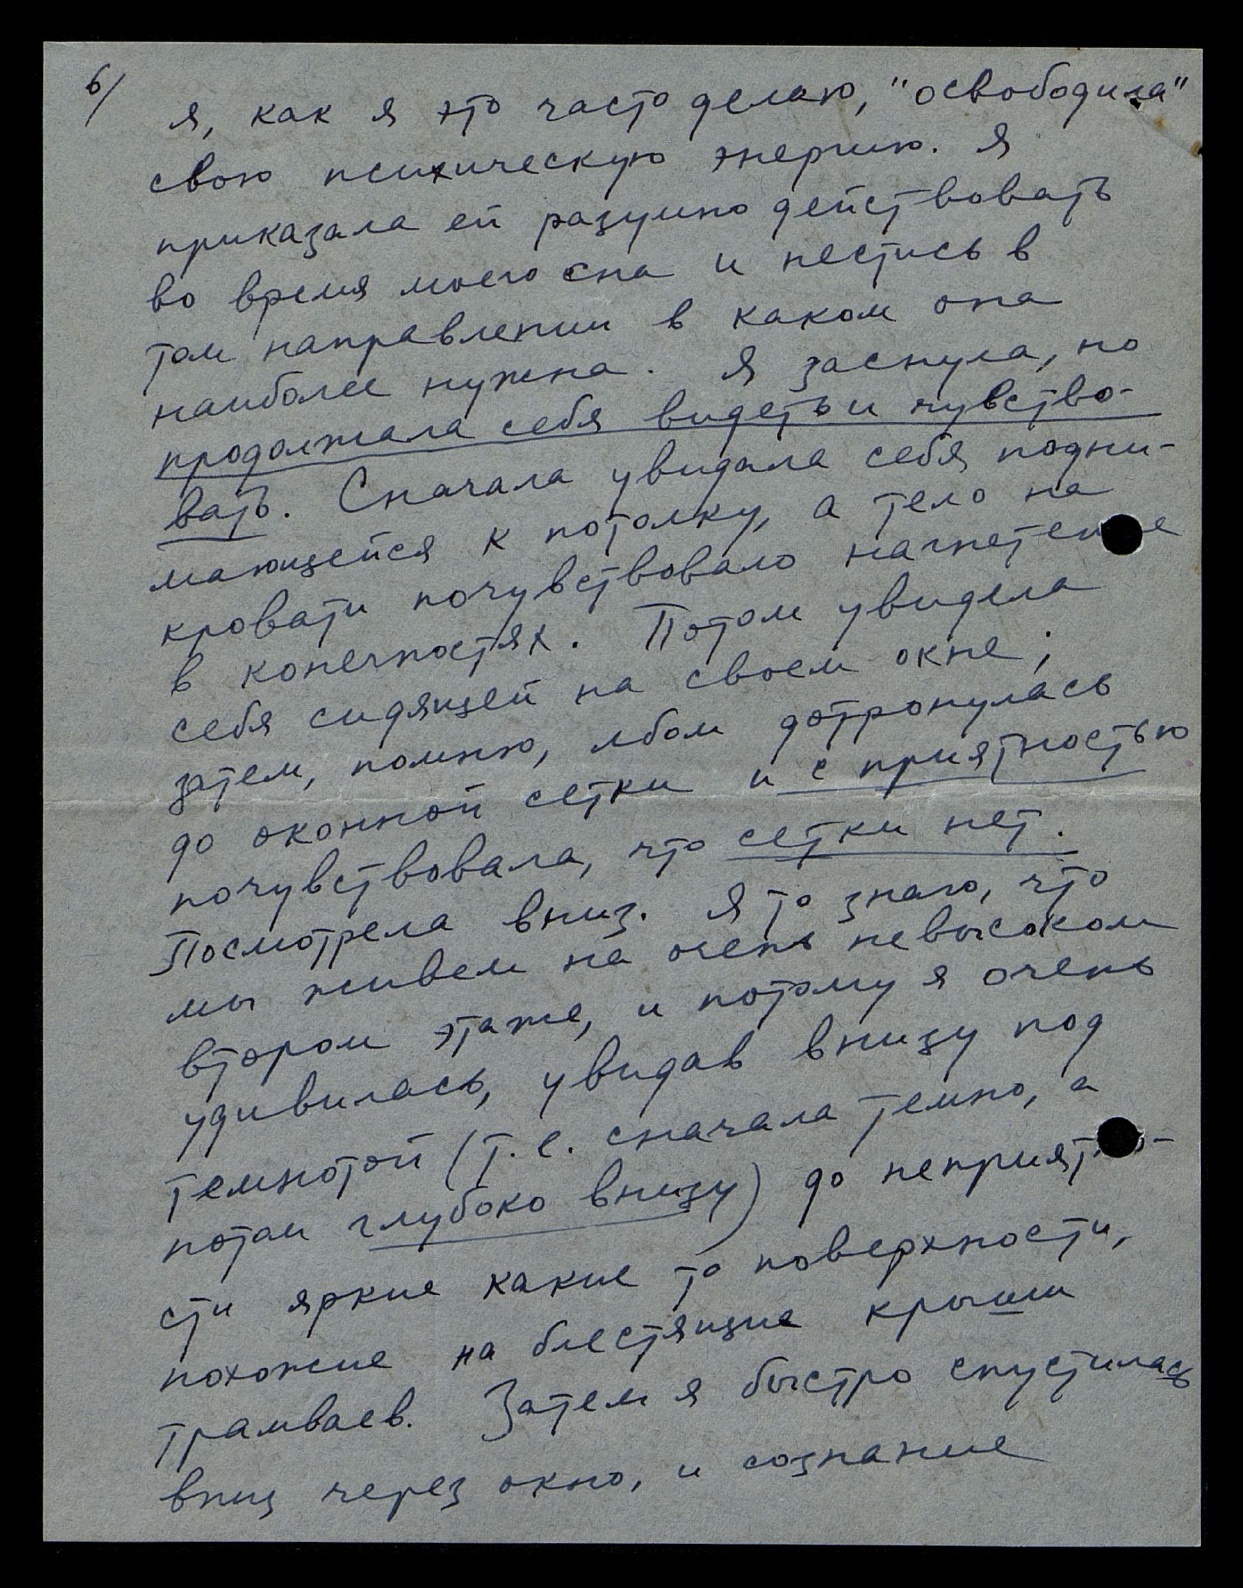 6/
я, как я это часто делаю, "освободила"
свою психическую энергию. Я
приказала ей разумно действовать
во время моего сна и нестись в
том направлении в каком она
наиболее нужна. Я заснула, но
продолжала себя видеть и чувство-
вать. Сначала увидала себя подни-
мающейся к потолку, а тело на
кровати почувствовало нагнетение
в конечностях. Потом увидела
себя сидящей на своем окне;
затем, помню, лбом дотронулась
до оконной сетки и с приятностью
почувствовала, что сетки нет.
Посмотрела вниз. Я то знаю, что
мы живем на очень невысоком
втором этаже, и потому я очень
удивилась, увидав внизу под
темнотой (т.е. сначала темно, а
потом глубоко внизу) до неприятно-
сти яркие какие то поверхности,
похожие на блестящие крыши
трамваев. Затем я быстро спустилась
вниз через окно, и сознание